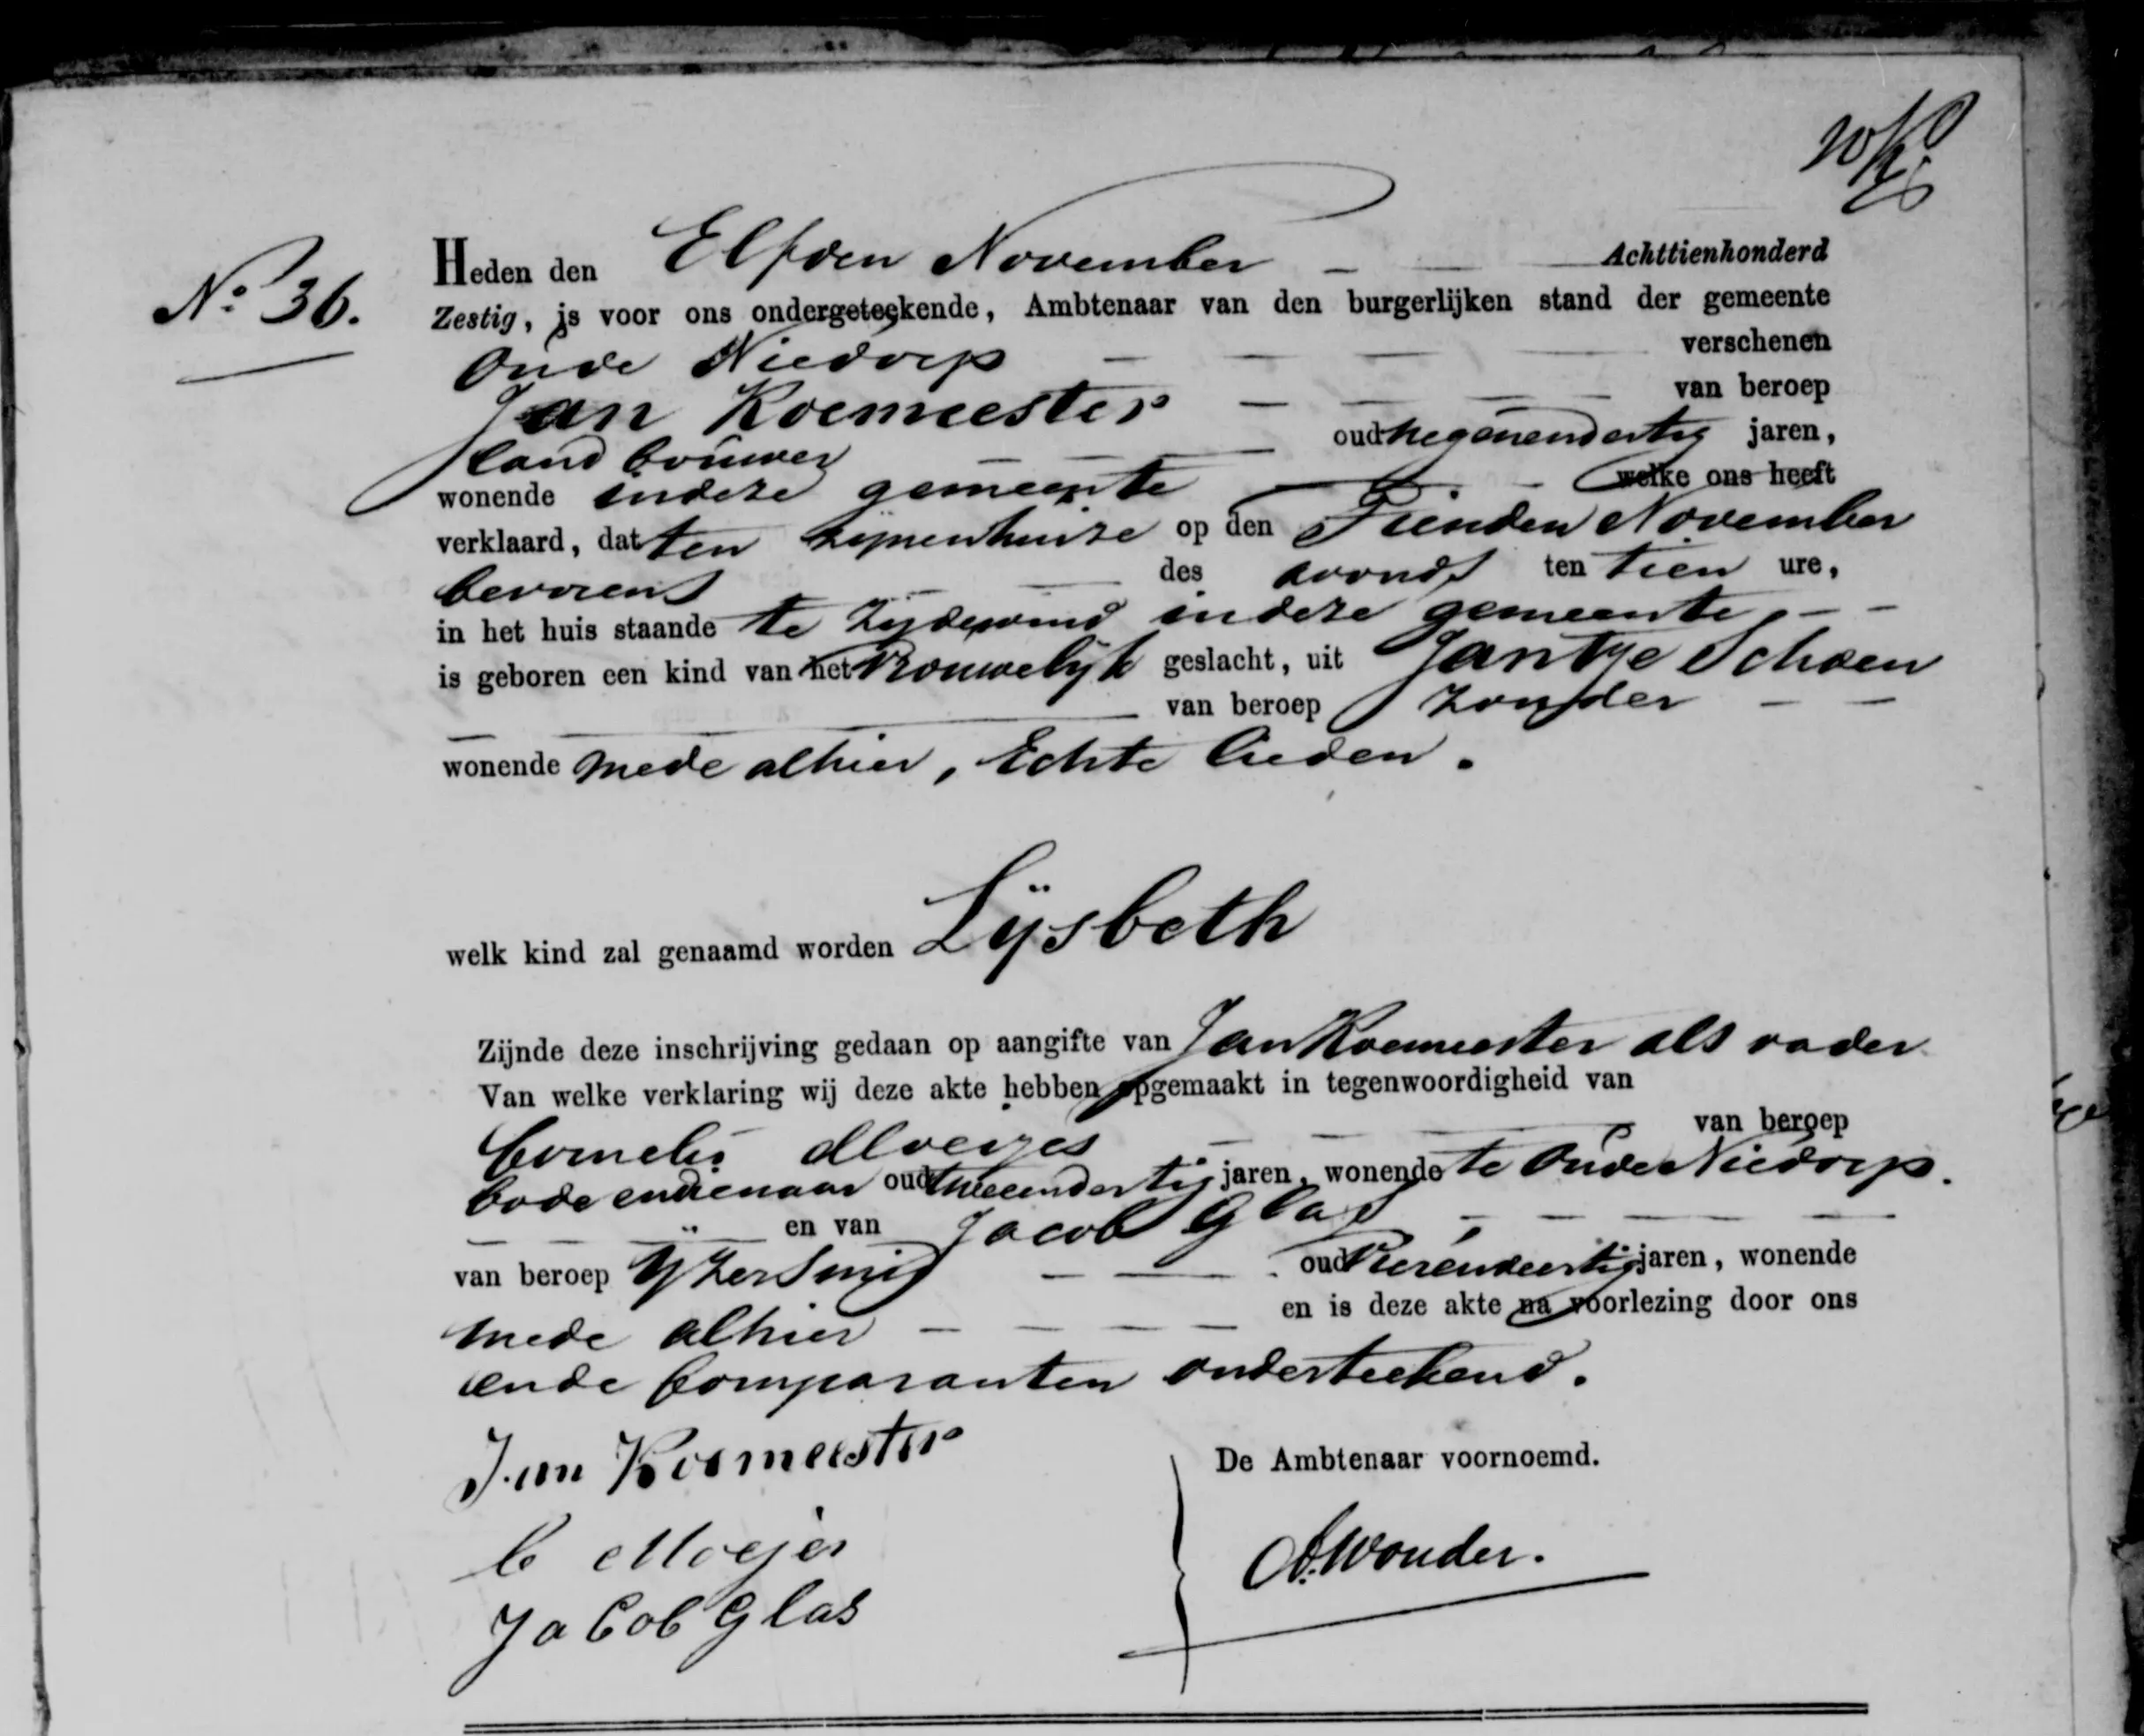 Nº 36.
Heden den Elfden November Achttienhonderd
Zestig, is voor ons ondergeteekende, Ambtenaar van den burgerlijken stand der gemeente
Oude Niedorp verschenen
Jan Koemeester van beroep
landbouwer oud negenendertig jaren,
wonende in deze gemeente welke ons heeft
verklaard, dat ten zijnenhuize op den Tienden November
bevorens des avonds ten tien ure,
in het huis staande te Zijdewind in deze gemeente
is geboren een kind van het Vrouwelijk geslacht, uit Jantje Schoen
van beroep zonder
wonende mede alhier, Echte lieden.
welk kind zal genaamd worden Lijsbeth
Zijnde deze inschrijving gedaan op aangifte van Jan Koemeester als vader
Van welke verklaring wij deze akte hebben opgemaakt in tegenwoordigheid van
Cornelis Moeijes van beroep
bode en dienaar oud tweeendertig jaren, wonende te Oude Niedorp.
en van Jacob Glas
van beroep IJzersmid oud Vierendertig jaren, wonende
mede alhier en is deze akte na voorlezing door ons
en de Comparanten onderteekend.
Jan Koemeester
De Ambtenaar voornoemd.
C Moejes
Wonder.
Jacob Glas